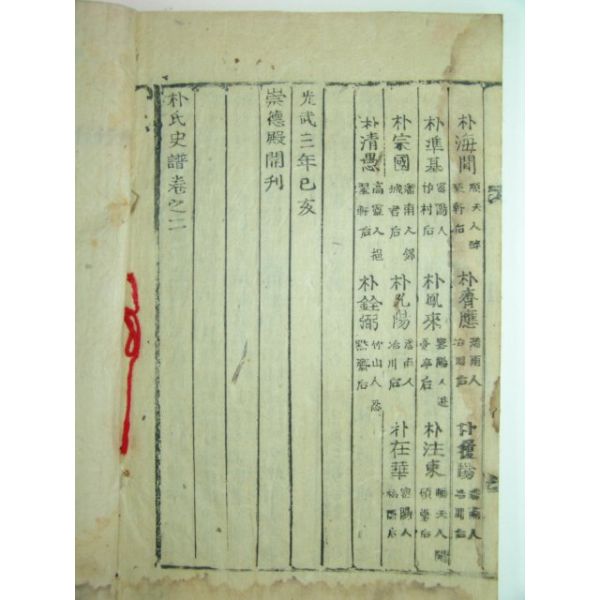 朴海闇 順天人 醉軒后 朴齊應 潘南人 冶川后 朴 陽 潘南人 冶川后
朴準基 密陽人 杏村后 朴鳳來 密陽人 亭后 朴注東 順天人 后
朴宗國 潘南人 錦城君后 朴允陽 潘南人 冶川后 朴在華 密陽人 后
朴清愚 高靈人 挹翠軒后 朴銓弼 竹山人 齋后
光武三年己亥
崇德殿開刊
朴氏史譜卷之二